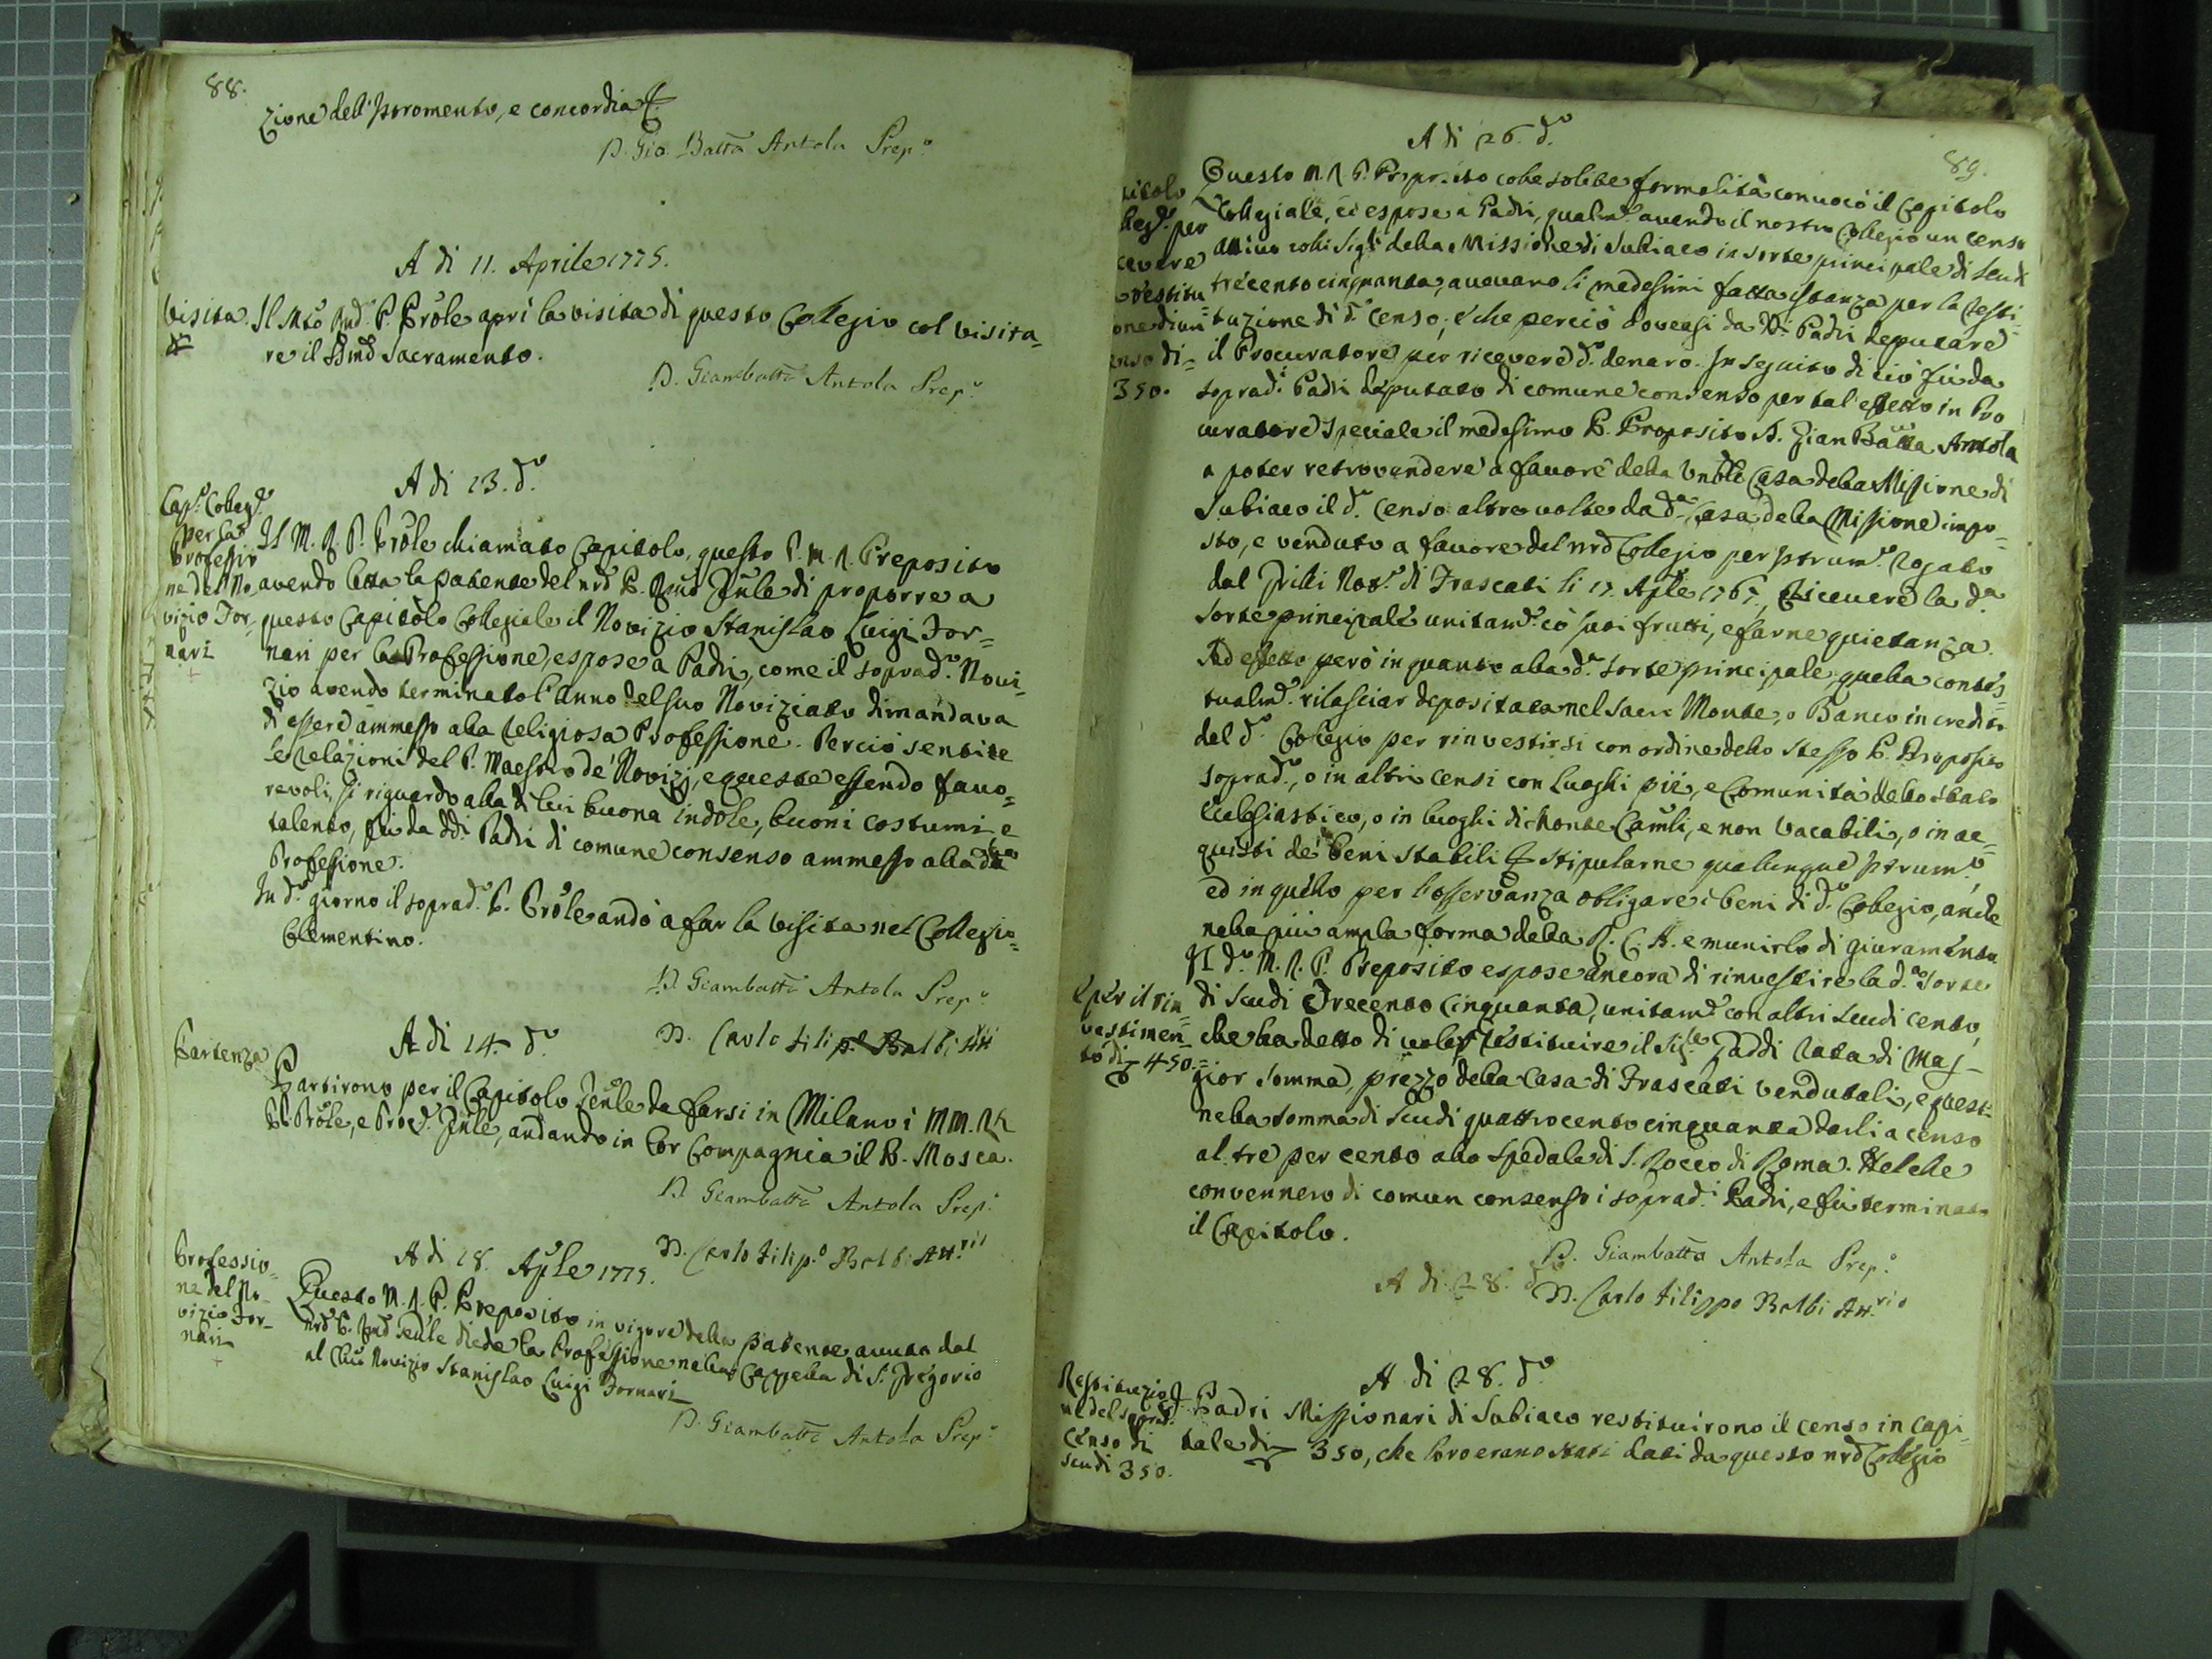 88.
zione dell'Istromento, e concordia &.
D. Gio. Batta Antola Prep.o
A di 11. Aprile 1775.
Visita. Il Mto Rnd.o P. Prõle aprì la visita di questo Collegio col visita=
re il SSmõ Sacramento.
D. Giambatta Antola Prep.o
A di 13. d.o
Cap.o Colleg.o
per la
Professio
ne del No
vizio For=
nari
Il M. R. P. Prõle chiamato Capitolo, questo P. M. R. Preposito
avendo letta la patente del nrõ P. Rmõ Gnãle di proporre a
questo Capitolo Collegiale il Novizio Stanislao Luigi For=
nari per la Professione, espose a Padri, come il soprad.o Novi=
zio avendo terminato l'anno del suo Noviziato dimandava
di essere ammesso alla religiosa Professione. Perciò sentite
le relazioni del P. Maestro de' Novizj, e queste essendo favo=
revoli, si riguardo alla di lui buona indole, buoni costumi e
talento, fù da ddi Padri di comune consenso ammesso alla d.a
Professione.
In d.o giorno il soprad.o P. Prõle andò a far la visita nel Collegio
Clementino.
D. Giambatta Antola Prep.o
D. Carlo Filip.o Balbi Att.rio
Partenza
A di 14. d.o
Partirono per il Capitolo Genle da farsi in Milano i MM. RR
PP. Prõle, e Proc.r Gnle, andando in lor Compagnia il P. Mosca.
D. Giambatta Antola Prep.o
D. Carlo Filip.o Balbi Att.rio
Professio=
ne del No=
vizio For=
nari
A di 18. Aple 1775.
Questo M. R. P. Preposito in vigore della patente avuta dal
nrõ P. Rmõ Genle diede la Professione nella Cappella di S. Gregorio
al Novizio Stanislao Luigi Fornari
D. Giambatta Antola Prep.o
89.
A di 26. d.o
itolo
lleg.o per
cevere
restitu
one di un
enso di=
350.
Questo M. R. P. Preposito colle solite formalità convocò il Capitolo
Collegiale, ed espose a Padri, qualm.e avendo il nostro Collegio un censo
attivo colli Sig.ri della Missione di Subiaco in sorte principale di scudi
trecento cinquanta, avevano li medesimi fatta istanza per la resti=
tuzione di d.o Censo; e che perciò dovessi da ddi Padri deputare
il Procuratore per ricevere d.o denaro. In seguito di ciò fù da
soprad.i Padri deputato di comune consenso per tal' effetto in Pro
curatore speciale il medesimo P. Preposito D. Gian Batta Antola
a poter retrovendere a favore della Vnble Casa della Missione di
Subiaco il d.o Censo altre volte da d.a Casa della Missione impo=
sto, e venduto a favore del nrõ Collegio per Istrum.o rogato
dal Grilli Not.o di Frascati li 17. Aple 1767. Ricevere la d.a
sorte principale unitam.e co' suoi frutti, e farne quietanza.
Ad effetto però in quanto alla d.a sorte principale quella contes=
tualm.e rilasciar depositata nel Sacro Monte, o Banco in credito
del d.o Collegio per rinvestirsi con ordine dello stesso P. Preposito
soprad.o, o in altri censi con Luoghi pii, e Comunità dello Stato
Ecclesiastico, o in luoghi di Monte Camli, e non Vacabili, o in ac=
quisti de' beni stabili & stipularne qualunque Istrum.o
ed in quello per l'osservanza obligare i beni di d.o Collegio, anche
nella più ampla forma della R. C. A. e munirlo di giuramento
E per il rin=
vestimen=
to di 450.
Il d.o M. R. P. Preposito espose ancora di rinvestire la d.a sorte
di scudi Trecento Cinquanta, unitam.e con altri scudi cento,
che ha detto di voler restituire il Sig.re Taddi rata di mag=
gior somma, prezzo della Casa di Frascati vendutali, e questi
nella somma di scudi quattrocento cinquanta darli a censo
al tre per cento allo Spedale di S. Rocco di Roma. Nel che
convennero di comun consenso i soprad.i Padri, e fù terminato
il Capitolo.
D. Giambatta Antola Prep.o
A di 28. d.o D. Carlo Filippo Balbi Att.rio
A di 28. d.o
Restituzio
ne del soprad.o
Censo di
scudi 350.
I Padri Missionari di Subiaco restituirono il censo in capi=
tale di 350, che loro erano stati dati da questo nrõ Collegio